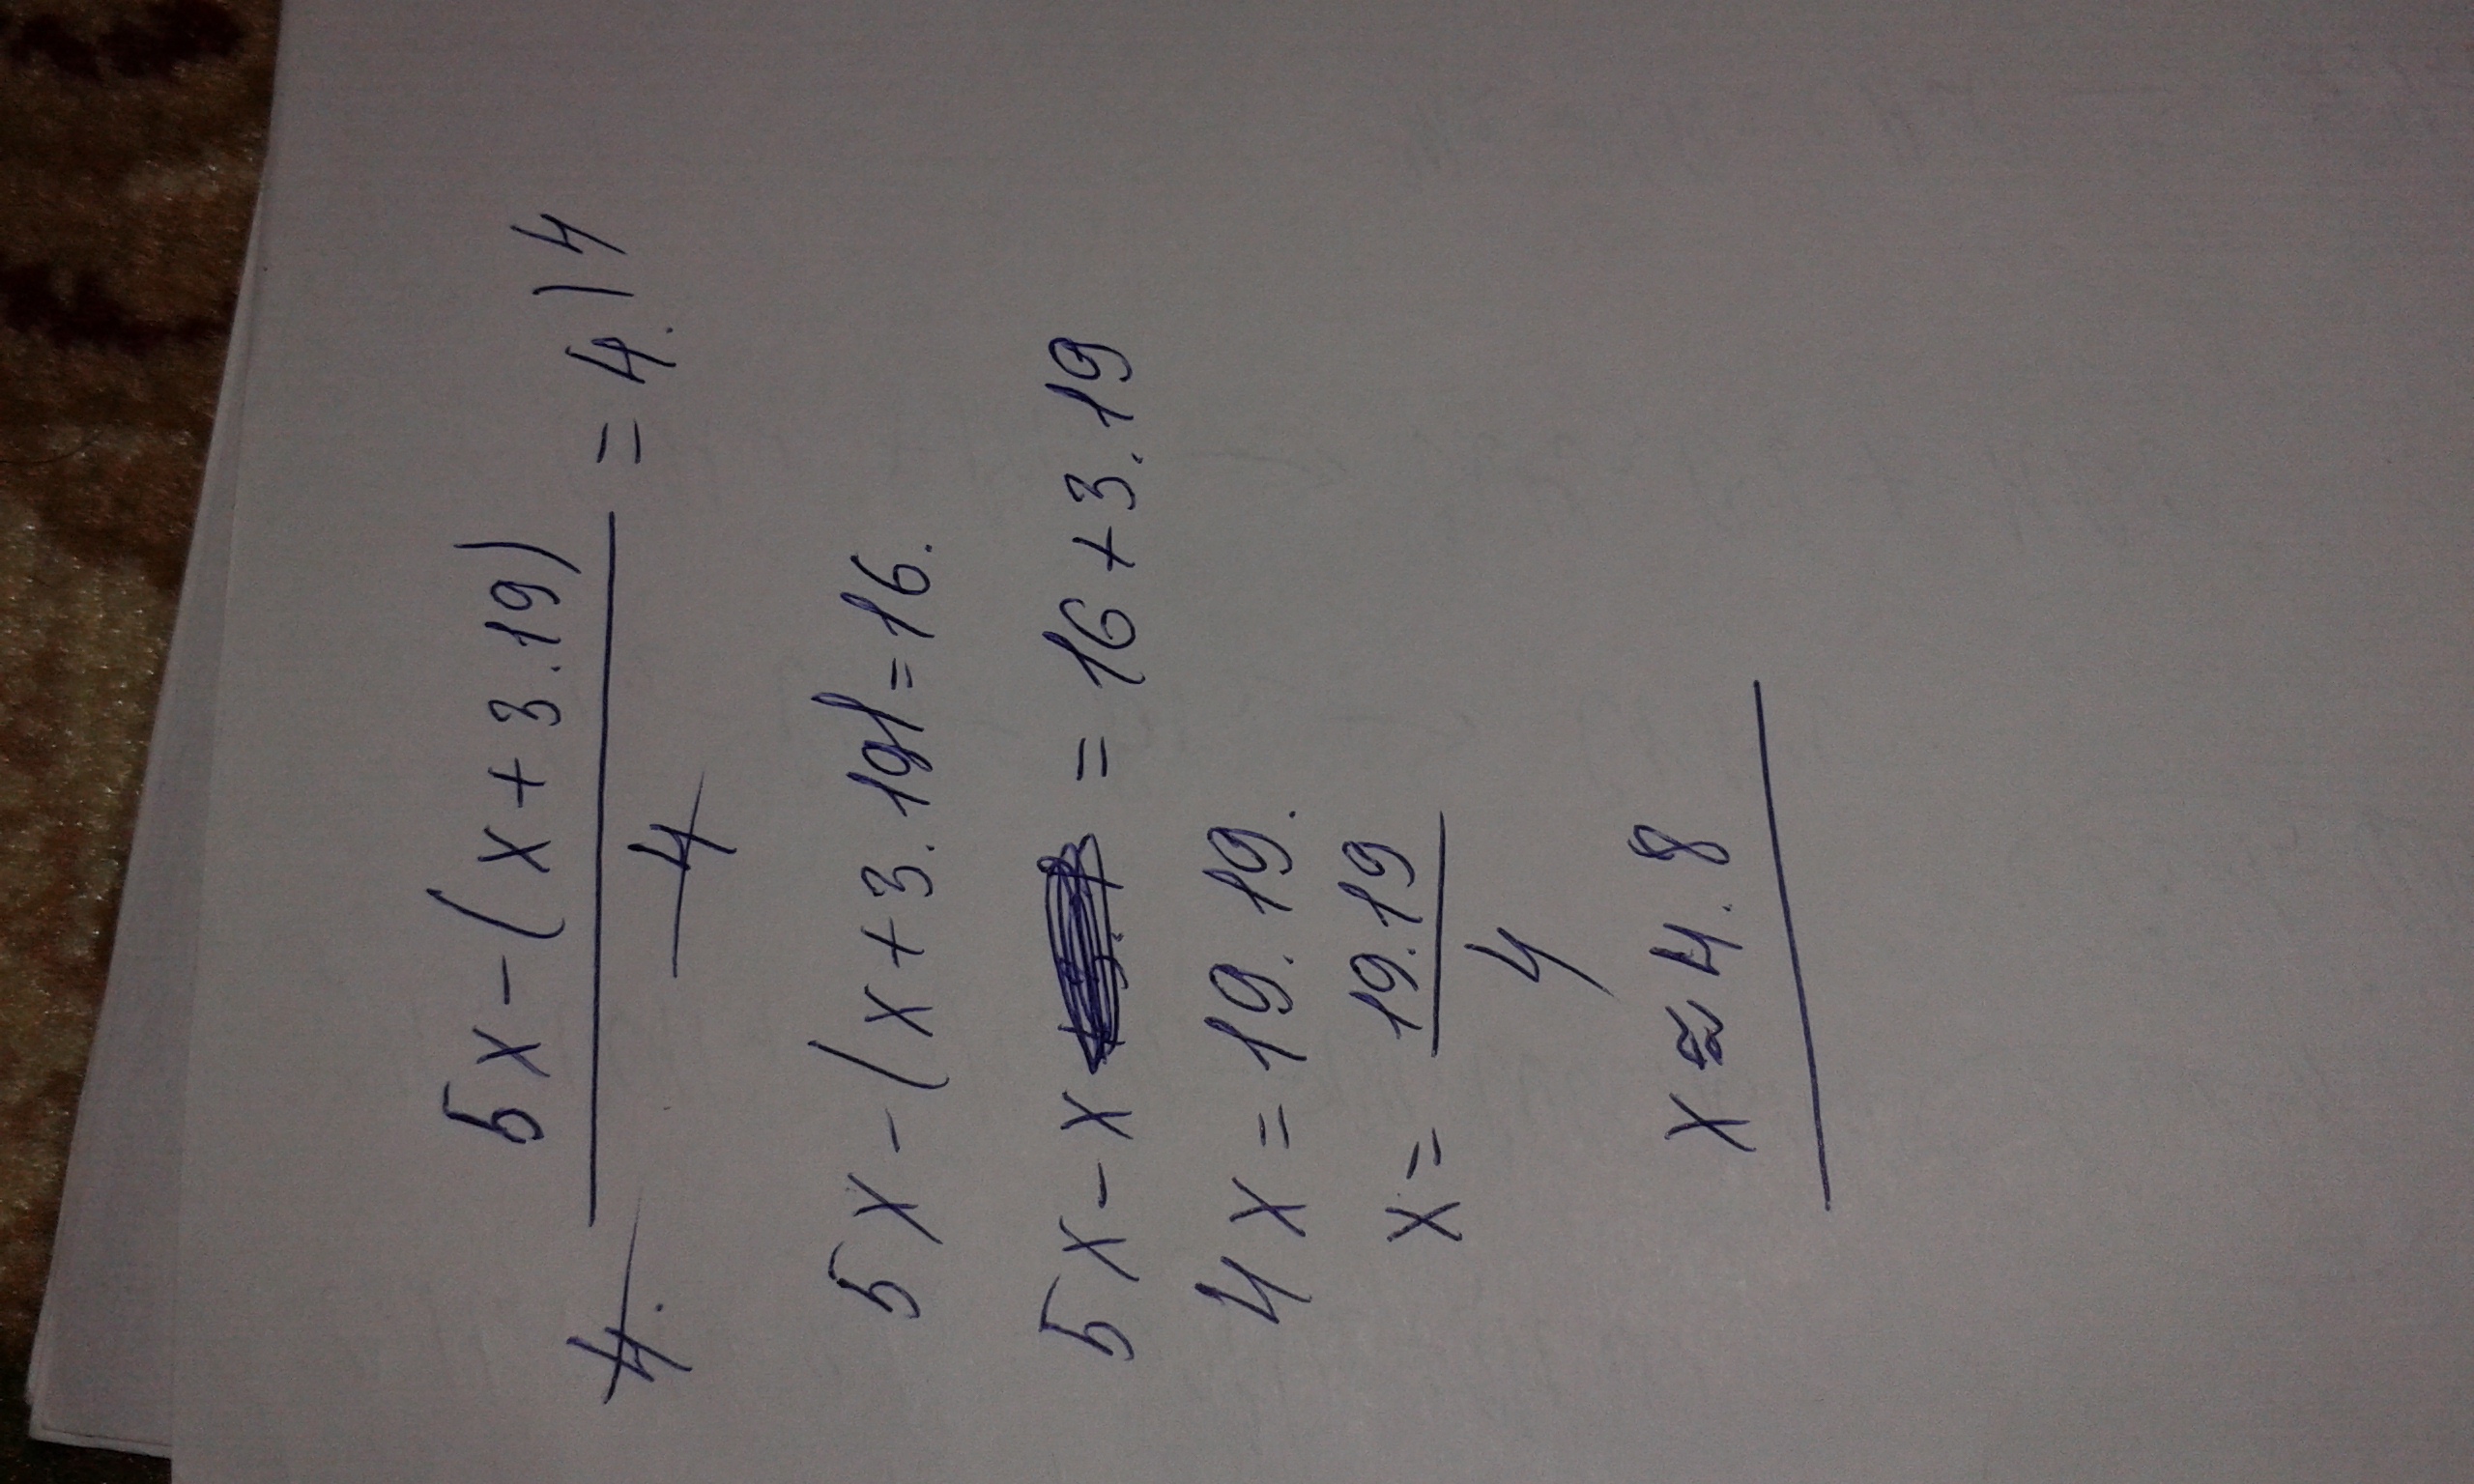 5x-(x+3.19)
4. = 4.14
4
5x-(x+3.19)=16.
5x-x = 16+3.19
4x=19.19.
x= 19.19
4
x≈4.8